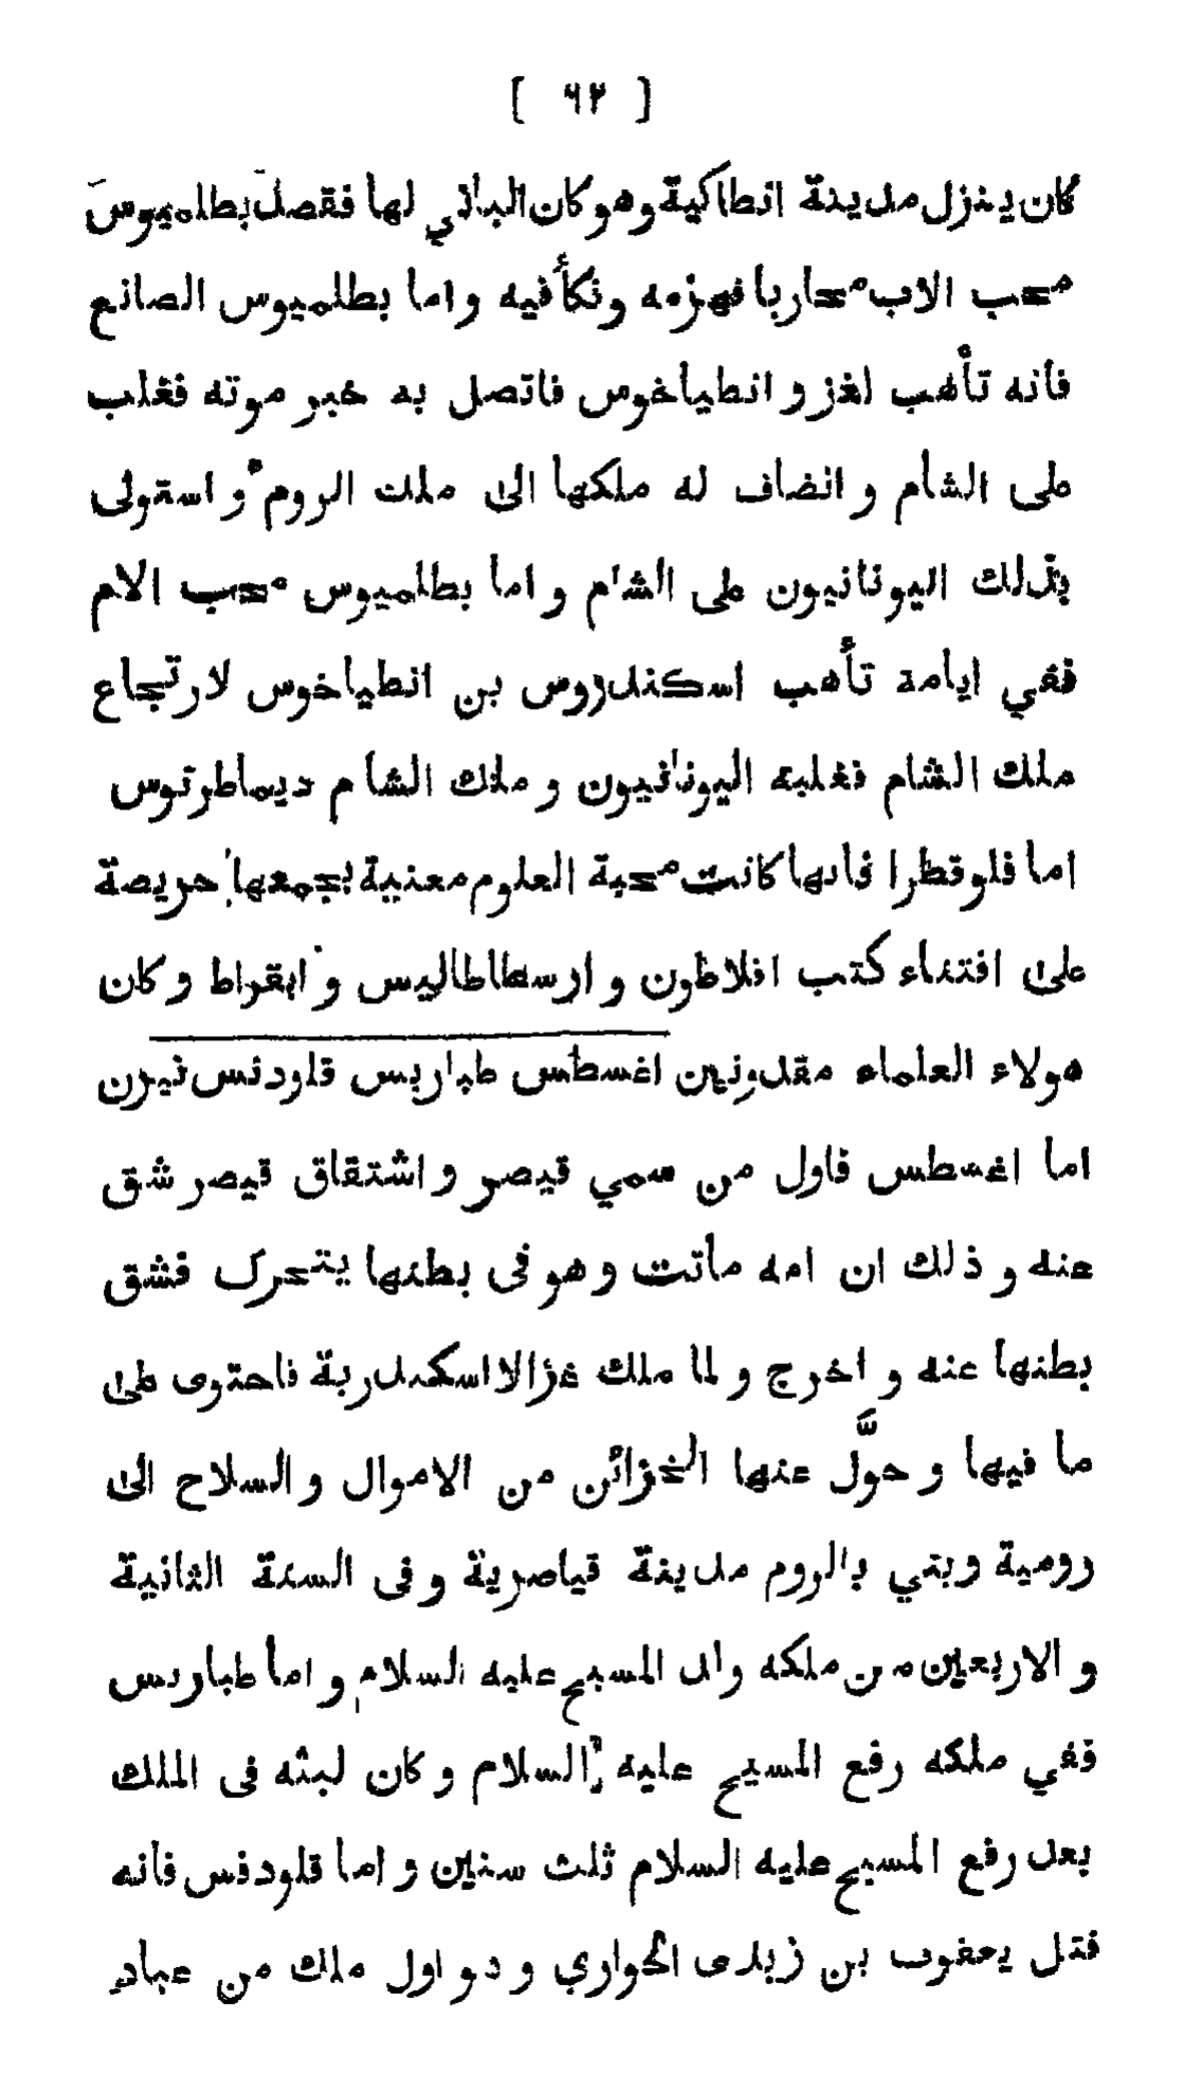 [ ٦٢ ]
كان ينزل مدينة انطاكية وهو كان الباني لها فقصد بطلميوس
محب الاب محاربا فهزمه ونكأ فيه واما بطلميوس الصانع
فانه تأهب لغزو انطياخوس فاتصل به خبر موته فغلب
على الشام و انضاف له ملكها الى ملك الروم و استولى
بذلك اليونانيون على الشام و اما بطلميوس محب الام
ففي ايامه تأهب اسكندروس بن انطياخوس لارتجاع
ملك الشام فغلبه اليونانيون و ملك الشام ديماطرتوس
اما قلوقطرا فانها كانت محبة العلوم معنية بجمعها حريصة
على اقتناء كتب افلاطون و ارسطاطاليس و ابقراط و كان
هولاء العلماء مقدونيين اغسطس طباريس قلودنس نيرن
اما اغسطس فاول من سمي قيصر و اشتقاق قيصر شق
عنه و ذلك ان امه ماتت و هو فى بطنها يتحرك فشق
بطنها عنه و اخرج و لما ملك غزا الاسكندرية فاحتوى على
ما فيها و حوَّل عنها الخزائن من الاموال و السلاح الى
رومية وبني بالروم مدينة قياصرية و فى السنة الثانية
و الاربعين من ملكه ولد المسيح عليه السلام و اما طباريس
ففي ملكه رفع المسيح عليه السلام و كان لبثه فى الملك
بعد رفع المسيح عليه السلام ثلث سنين و اما قلودفس فانه
قتل يعقوب بن زبدى الحواري و هو اول ملك من عباد